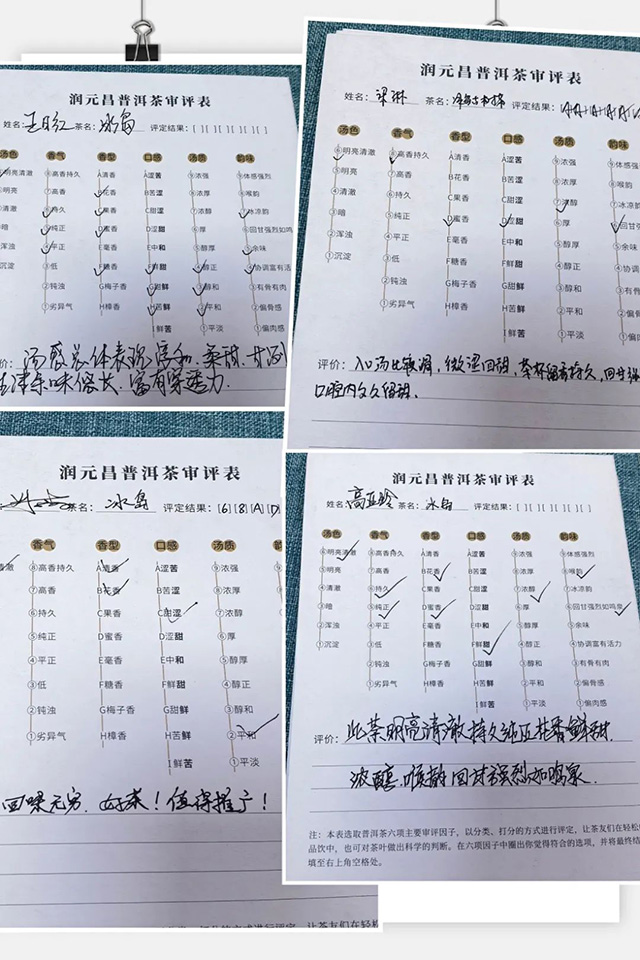 润元昌普洱茶审评表
姓名: 茶名: 冰岛 评定结果: [ ] [ ] [ ] [ ] [ ] [ ]
汤色 香气 香型 口感 汤质 韵味
明亮清澈 ⑧高香持久 A清香 A涩苦 ⑨浓强 ⑨体感强烈
明亮 ⑦高香 B花香 B苦涩 ⑧浓厚 ⑧喉韵
清澈 ⑥持久 C果香 C甜涩 ⑦浓醇 ⑦冰凉韵
暗 ⑤纯正 D蜜香 D涩甜 ⑥厚 ⑥回甘强烈如鸣
浑浊 ④平正 E毫香 E中和 ⑤醇厚 ⑤余味
沉淀 ③低 F糖香 F鲜甜 ④醇正 ④协调富有活
②钝浊 G梅子香 G甜鲜 ③醇和 ③有骨有肉
①劣异气 H樟香 H苦鲜 ②平和 ②偏骨感
I鲜苦 ①平淡 ①偏肉感
价: 汤感总体表现 柔甜. 甘
生津 味悠长. 富有穿透力.
润元昌普洱茶审评表
姓名: 梁琳 茶名: 评定结果:
汤色 香气 香型 口感 汤质 韵味
⑥明亮清澈 ⑧高香持久 A清香 A涩苦 ⑨浓强 ⑨体感强烈
⑤明亮 ⑦高香 B花香 B苦涩 ⑧浓厚 ⑧喉韵
④清澈 ⑥持久 C果香 C甜涩 ⑦浓醇 ⑦冰凉韵
③暗 ⑤纯正 D蜜香 D涩甜 ⑥厚 ⑥回甘强
②浑浊 ④平正 E毫香 E中和 ⑤醇厚 ⑤余味
①沉淀 ③低 F糖香 F鲜甜 ④醇正 ④协调富
②钝浊 G梅子香 G甜鲜 ③醇和 ③有骨有
①劣异气 H樟香 H苦鲜 ②平和 ②偏骨
I鲜苦 ①平淡 ①偏肉
评价: 入口汤比较润, 微涩回甜, 茶杯留香持久, 回甘
口腔内久久留甜.
润元昌普洱茶审评表
茶名: 冰岛 评定结果: [6] [8] [A] [D
香气 香型 口感 汤质
清澈 ⑧高香持久 A清香 A涩苦 ⑨浓强
⑦高香 B花香 B苦涩 ⑧浓厚
⑥持久 C果香 C甜涩 ⑦浓醇
⑤纯正 D蜜香 D涩甜 ⑥厚
④平正 E毫香 E中和 ⑤醇厚
③低 F糖香 F鲜甜 ④醇正
②钝浊 G梅子香 G甜鲜 ③醇和
①劣异气 H樟香 H苦鲜 ②平和
I鲜苦 ①平淡
回味无穷. 好茶! 值得推广!
润元昌普洱茶审评表
姓名: 高亚玲 茶名: 冰岛 评定结果: [ ] [ ] [ ] [ ] [ ] [ ]
汤色 香气 香型 口感 汤质 韵味
⑥明亮清澈 ⑧高香持久 A清香 A涩苦 ⑨浓强 ⑨体感强烈
⑤明亮 ⑦高香 B花香 B苦涩 ⑧浓厚 ⑧喉韵
④清澈 ⑥持久 C果香 C甜涩 ⑦浓醇 ⑦冰凉韵
③暗 ⑤纯正 D蜜香 D涩甜 ⑥厚 ⑥回甘强烈如鸣泉
②浑浊 ④平正 E毫香 E中和 ⑤醇厚 ⑤余味
①沉淀 ③低 F糖香 F鲜甜 ④醇正 ④协调富有活力
②钝浊 G梅子香 G甜鲜 ③醇和 ③有骨有肉
①劣异气 H樟香 H苦鲜 ②平和 ②偏骨感
I鲜苦 ①平淡 ①偏肉感
评价: 此茶明亮清澈持久纯正花香鲜甜
浓醇. 喉韵 回甘强烈如鸣泉.
注: 本表选取普洱茶六项主要审评因子, 以分类、打分的方式进行评定, 让茶友们在轻松
品饮中, 也可对茶叶做出科学的判断。在六项因子中圈出你觉得符合的选项, 并将最终结
填至右上角空格处。